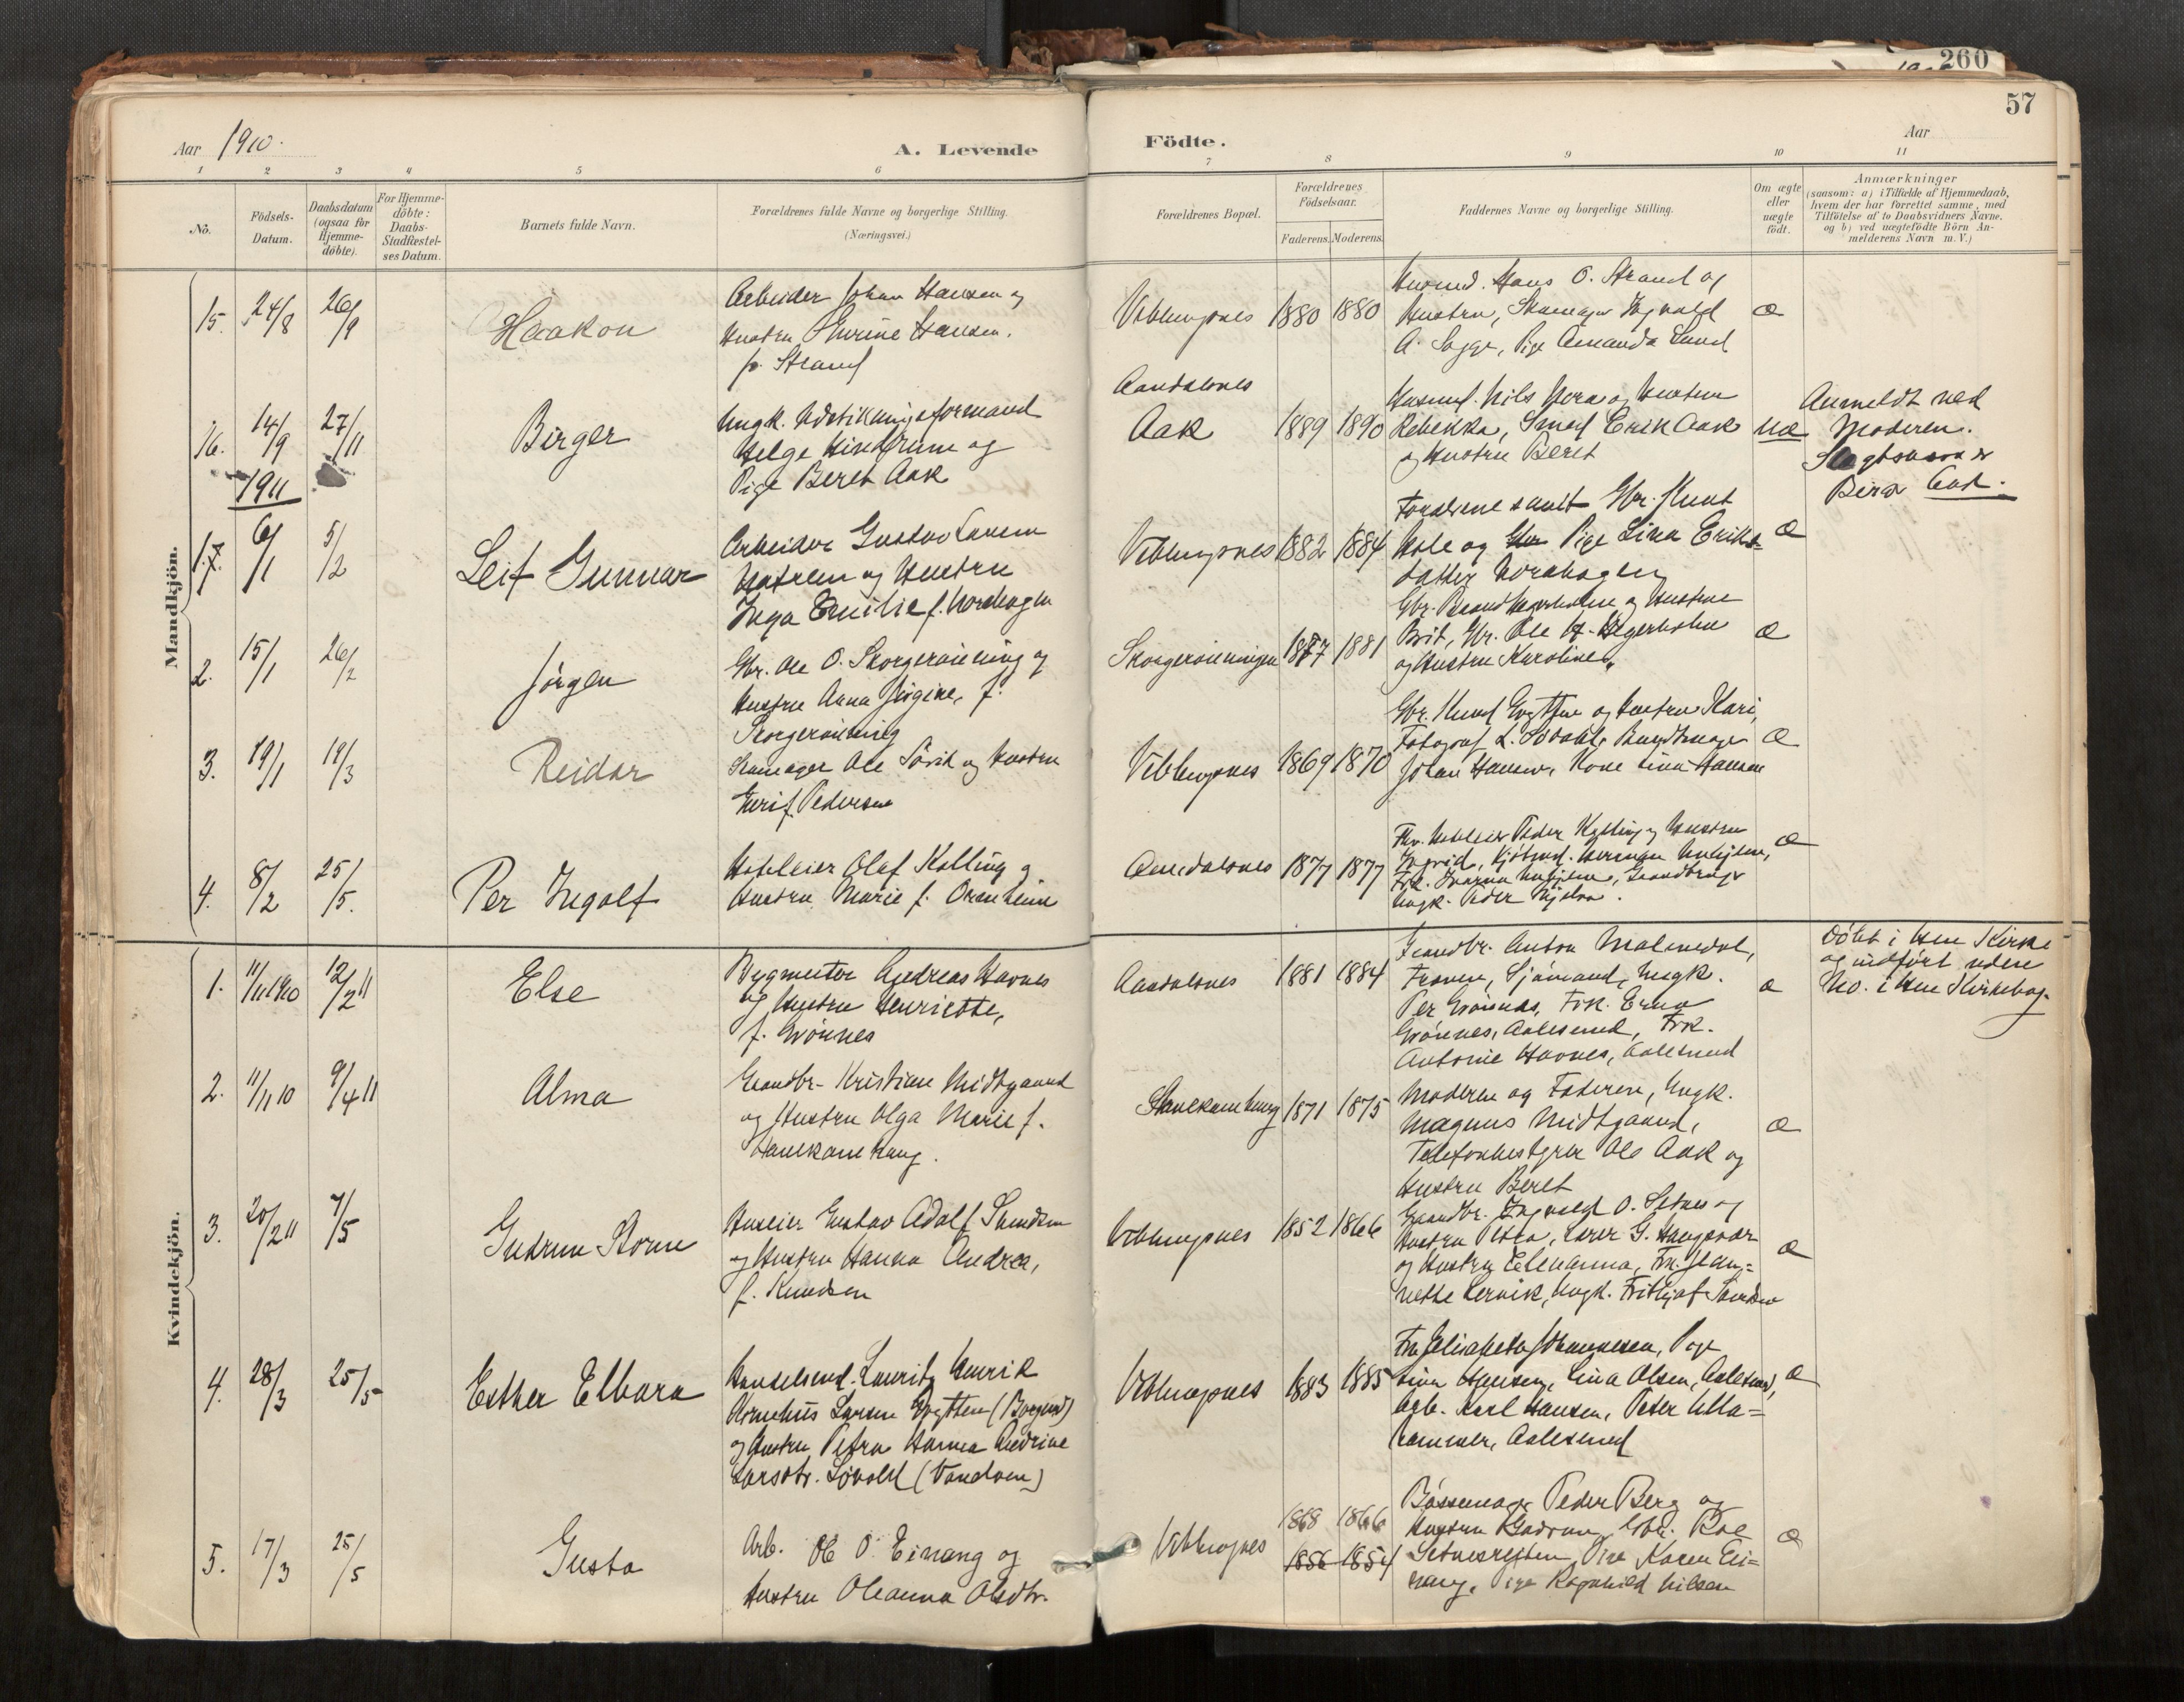 260
57
Aar 1910.
A. Levende
Födte.
Aar
1 2 3 4 5 6 7 8 9 10 11
No.
Födsels-
Datum.
Daabsdatum
(ogsaa for
Hjemme-
döbte).
For Hjemme-
döbte:
Daabs-
Stadfæstel-
ses Datum.
Barnets fulde Navn.
Forældrenes fulde Navne og borgerlige Stilling.
(Næringsvei.)
Forældrenes Bopæl.
Forældrenes
Födselsaar.
Faderens. Moderens.
Faddernes Navne og borgerlige Stilling.
Om ægte
eller
uægte
födt.
Anmærkninger
(saasom: a) i Tilfælde af Hjemmedaab,
hvem der har forrettet samme, med
Tilföielse af to Daabsvidners Navne.
og b) ved uægtefödte Börn An-
melderens Navn m. V.)
Mandkjön.
15. 24/8 26/9
Haakon
Arbeider Johan Hansen og
Hustru Hansen.
f. Strand
Veblungsnes 1880 1880
Hans O. Strand og
Hustru, Skomager Ingvald
A. Sogge, Pige Amanda Lund
Æ
16. 14/9 27/11
Birger
Ungk.
Helge og
Pige Beret Aak
Aandalsnes
Aak 1889 1890
Husmd. Nils Nora og Hustru
Rebekka, Smed Erik Aak
og Hustru Beret
Uæ
Anmeldt ved
Moderen.
1911
1. 6/1 5/2
Leif Gunnar
Arbeider Gustav
og Hustru
Inga Emilie f. Nordhagen
Veblungsnes 1882 1884
Forældrene samt Gbr. Knut
Hole og Pige Lina Eriks-
datter Nordhagen
Æ
2. 15/1 26/2
Jörgen
Gbr. Ole O. Skorgeröiening og
Hustru Anna Jörgine, f.
Skorgeröiening
Skorgeröieningen 1877 1881
Brit, Gbr. Ole
og Hustru Karoline
Æ
3. 19/1 19/3
Reidar
Skomager Ole og Hustru
Guri f. Pedersen
Veblungsnes 1869 1870
Gbr. Knud og Hustru Kari,
Fotograf L. Södahl,
Johan Hansen, Kone Lina Hansen
Æ
4. 8/2 25/5.
Per Ingolf
Hoteleier Olaf Kölling og
Hustru Marie f. Ormheim
Aandalsnes 1877 1877
Fhv. Hoteleier Peder Kölling og Hustru
Ingrid, Herman
Frk.
Ungk. Peder
Æ
Kvindekjön.
1. 11/11 1910 12/2 11
Else
Bygmester Andreas Havnes
og Hustru Henriette,
f. Grönnes
Aandalsnes 1881 1884
Gaardbr. Anton Malmedal,
Fruen, Sjömand, Ungk.
Per Grönnes, Frk. Erna
Grönnes, Aalesund, Frk.
Antonie Havnes, Aalesund
æ
Döbt i Hen Kirke
og indfört uden
No. i Hen Kirkebog.
2. 11/11 10 9/4 11
Alma
Gaardbr. Kristian Midtgaard
og Hustru Olga Marie f.
Hanekamhaug.
Hanekamhaug 1871 1875
Moderen og Faderen, Ungk.
Magnus Midtgaard,
Telefonbestyrer Ole Aak og
Hustru Beret
Æ
3. 20/2 11 7/5
Gudrun Storm
Huseier Gustav Adolf
og Hustru Hanna Andrea,
f. Knudsen
Veblungsnes 1852 1866
Gaardbr. Ingvald O. Setnes og
Hustru Petra, Lærer G.
og Hustru
Ungk. Frithjof
Æ
4. 28/3 25/5
Esther Elbara
Handelsmd. Laurits Henrik
Kornelius Larsen (Borgund)
og Hustru Petra Hanna Andrine
Larsdtr. Lövold (Vandven)
Veblungsnes 1883 1885
Fru Elisabeta Johannesen, Pige
Lina Hansen, Lina Olsen, Aalesund,
Arb. Karl Hansen, Peter Ulla-
rammen, Aalesund
Æ
5. 17/3 25/5
Gusta
Arb. Ole O. Einang og
Hustru Oleanna Olsdtr.
Veblungsnes 1868 1866
1856 1854
Bössemager Peder Berg og
Hustru Gudrun, Gbr. Roe
Setnesreiten, Pige Karen Ei-
nang, Pige Ragnhild Nilsen
Æ